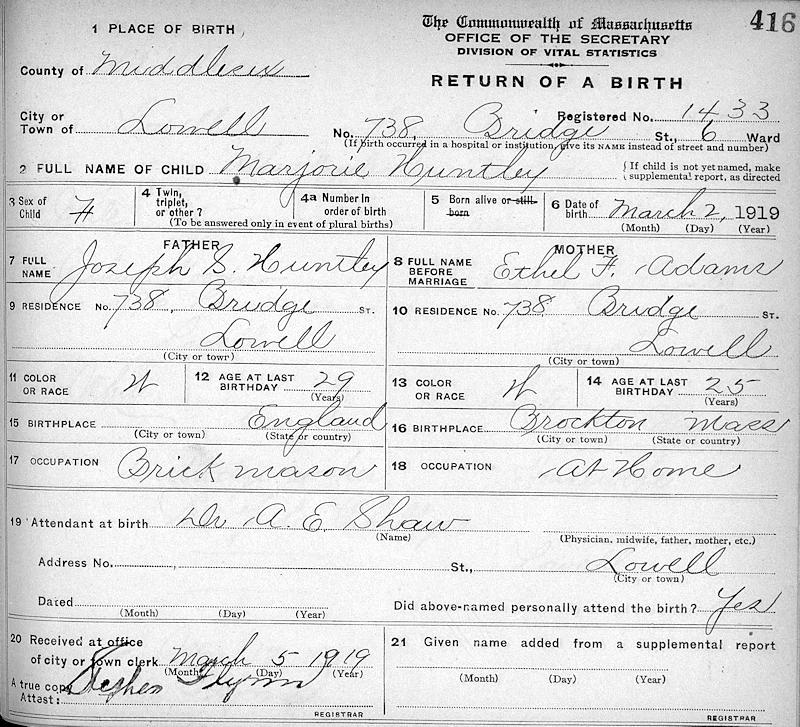 416
The Commonwealth of Massachusetts
OFFICE OF THE SECRETARY
DIVISION OF VITAL STATISTICS
RETURN OF A BIRTH
1 PLACE OF BIRTH
County of Middlesex
Registered No. 1433
City or
Town of Lowell No. 738 Bridge St., 6 Ward
(If birth occurred in a hospital or institution, give its NAME instead of street and number)
2 FULL NAME OF CHILD Marjorie Huntley { If child is not yet named, make
supplemental report, as directed
3 Sex of
Child F
4 Twin,
triplet,
or other?
4a Number in
order of birth
(To be answered only in event of plural births)
5 Born alive or still-
born
6 Date of
birth March 2, 1919
(Month) (Day) (Year)
FATHER
7 FULL
NAME Joseph S. Huntley
MOTHER
8 FULL NAME
BEFORE
MARRIAGE Ethel F. Adams
9 RESIDENCE No. 738 Bridge ST.
Lowell
(City or town)
10 RESIDENCE No. 738 Bridge ST.
Lowell
(City or town)
11 COLOR
OR RACE W
12 AGE AT LAST
BIRTHDAY 29
(Years)
13 COLOR
OR RACE W
14 AGE AT LAST
BIRTHDAY 25
(Years)
15 BIRTHPLACE England
(City or town) (State or country)
16 BIRTHPLACE Brockton Mass
(City or town) (State or country)
17 OCCUPATION Brick mason
18 OCCUPATION At Home
19 Attendant at birth Dr A. E. Shaw
(Name) (Physician, midwife, father, mother, etc.)
Address No. St., Lowell
(City or town)
Dated
(Month) (Day) (Year)
Did above-named personally attend the birth? Yes
20 Received at office
of city or town clerk March 5 1919
(Month) (Day) (Year)
A true copy
Attest: Stephen Flynn
REGISTRAR
21 Given name added from a supplemental report
(Month) (Day) (Year)
REGISTRAR